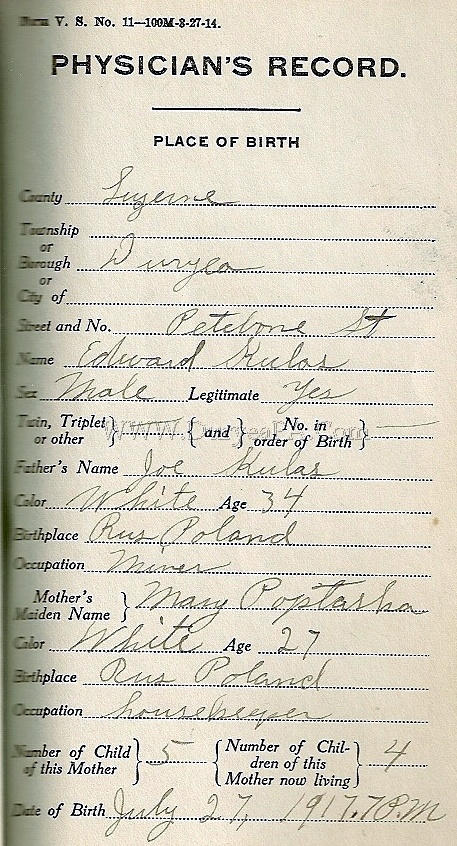 Form V. S. No. 11—100M-3-27-14.
PHYSICIAN'S RECORD.
PLACE OF BIRTH
County Luzerne
Township
or
Borough Duryea
or
City of
Street and No. Petebone St
Name Edward Kulas
Sex Male Legitimate Yes
Twin, Triplet or other } — { and } No. in order of Birth } —
Father's Name Joe Kulas
Color White Age 34
Birthplace Rus Poland
Occupation Miner
Mother's Maiden Name } Mary Poptasha
Color White Age 27
Birthplace Rus Poland
Occupation housekeeper
Number of Child of this Mother } 5 { Number of Children of this Mother now living } 4
Date of Birth July 27, 1917. 7 P.M